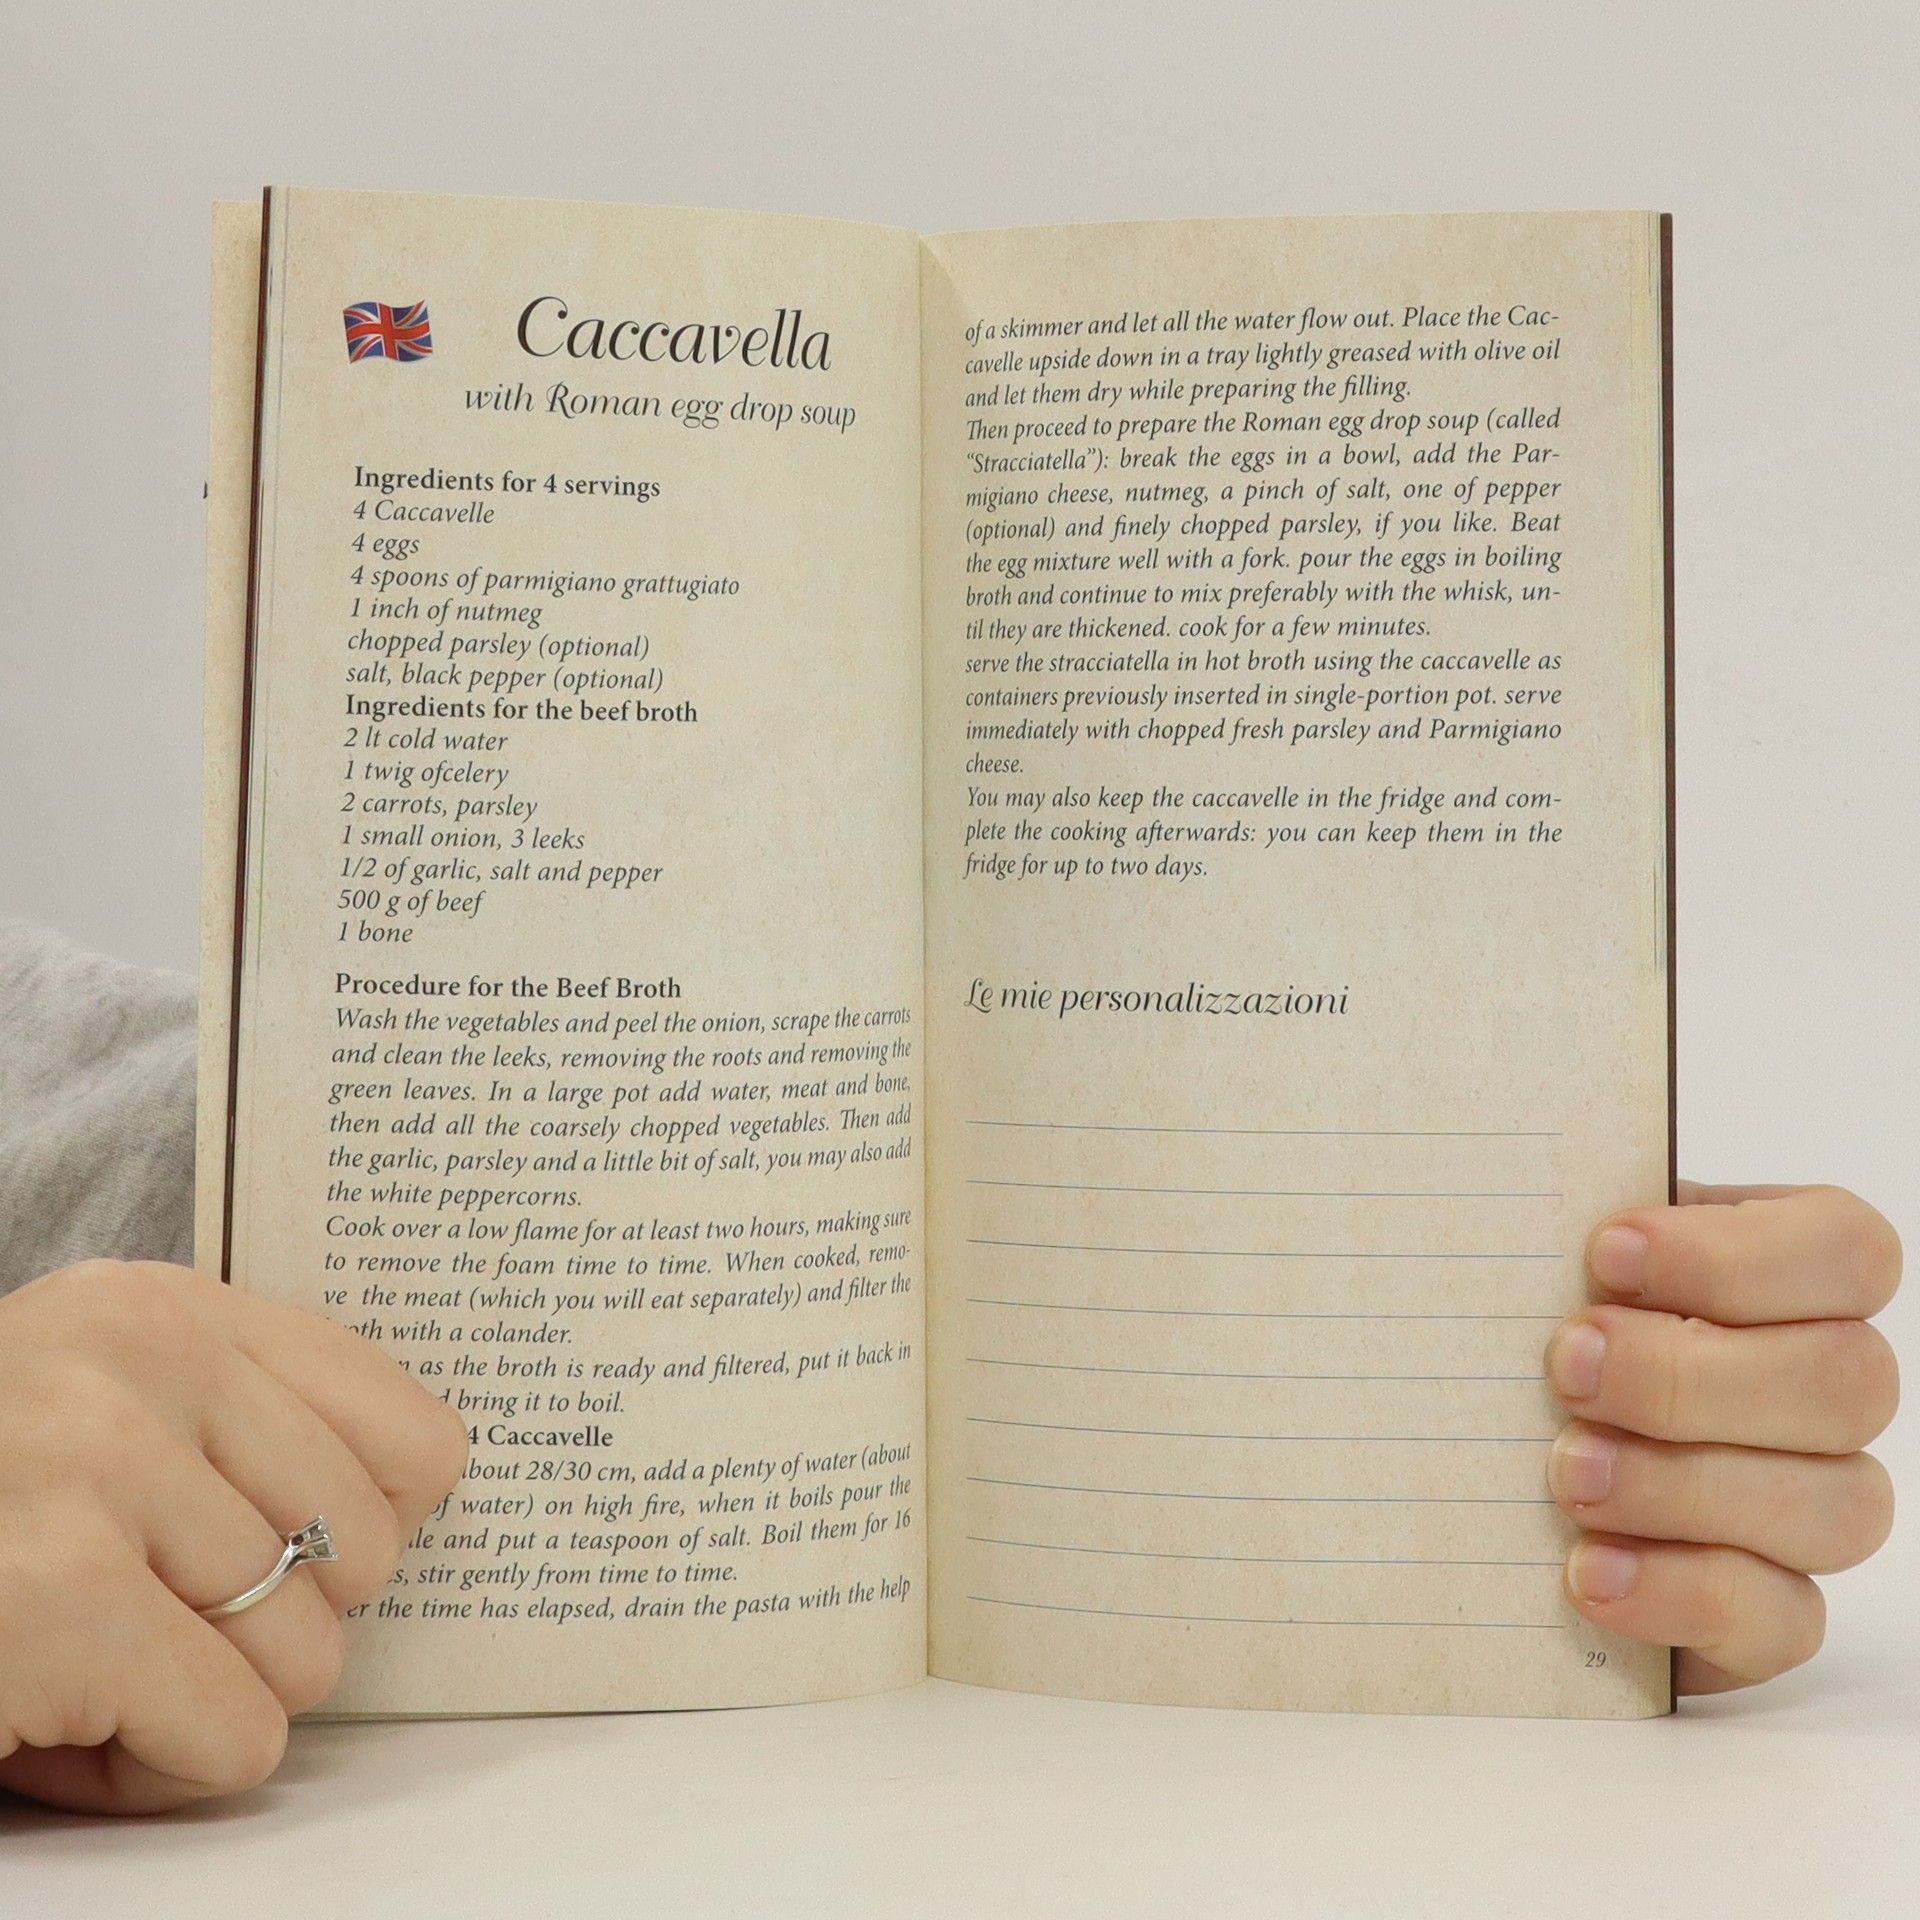 Caccavella
with Roman egg drop soup
Ingredients for 4 servings
4 Caccavelle
4 eggs
4 spoons of parmigiano grattugiato
1 inch of nutmeg
chopped parsley (optional)
salt, black pepper (optional)
Ingredients for the beef broth
2 lt cold water
1 twig ofcelery
2 carrots, parsley
1 small onion, 3 leeks
1/2 of garlic, salt and pepper
500 g of beef
1 bone
Procedure for the Beef Broth
Wash the vegetables and peel the onion, scrape the carrots
and clean the leeks, removing the roots and removing the
green leaves. In a large pot add water, meat and bone,
then add all the coarsely chopped vegetables. Then add
the garlic, parsley and a little bit of salt, you may also add
the white peppercorns.
Cook over a low flame for at least two hours, making sure
to remove the foam time to time. When cooked, remo-
ve the meat (which you will eat separately) and filter the
with a colander.
as the broth is ready and filtered, put it back in
bring it to boil.
4 Caccavelle
about 28/30 cm, add a plenty of water (about
of water) on high fire, when it boils pour the
and put a teaspoon of salt. Boil them for 16
stir gently from time to time.
the time has elapsed, drain the pasta with the help
of a skimmer and let all the water flow out. Place the Cac-
cavelle upside down in a tray lightly greased with olive oil
and let them dry while preparing the filling.
Then proceed to prepare the Roman egg drop soup (called
“Stracciatella”): break the eggs in a bowl, add the Par-
migiano cheese, nutmeg, a pinch of salt, one of pepper
(optional) and finely chopped parsley, if you like. Beat
the egg mixture well with a fork. pour the eggs in boiling
broth and continue to mix preferably with the whisk, un-
til they are thickened. cook for a few minutes.
serve the stracciatella in hot broth using the caccavelle as
containers previously inserted in single-portion pot. serve
immediately with chopped fresh parsley and Parmigiano
cheese.
You may also keep the caccavelle in the fridge and com-
plete the cooking afterwards: you can keep them in the
fridge for up to two days.
Le mie personalizzazioni
29